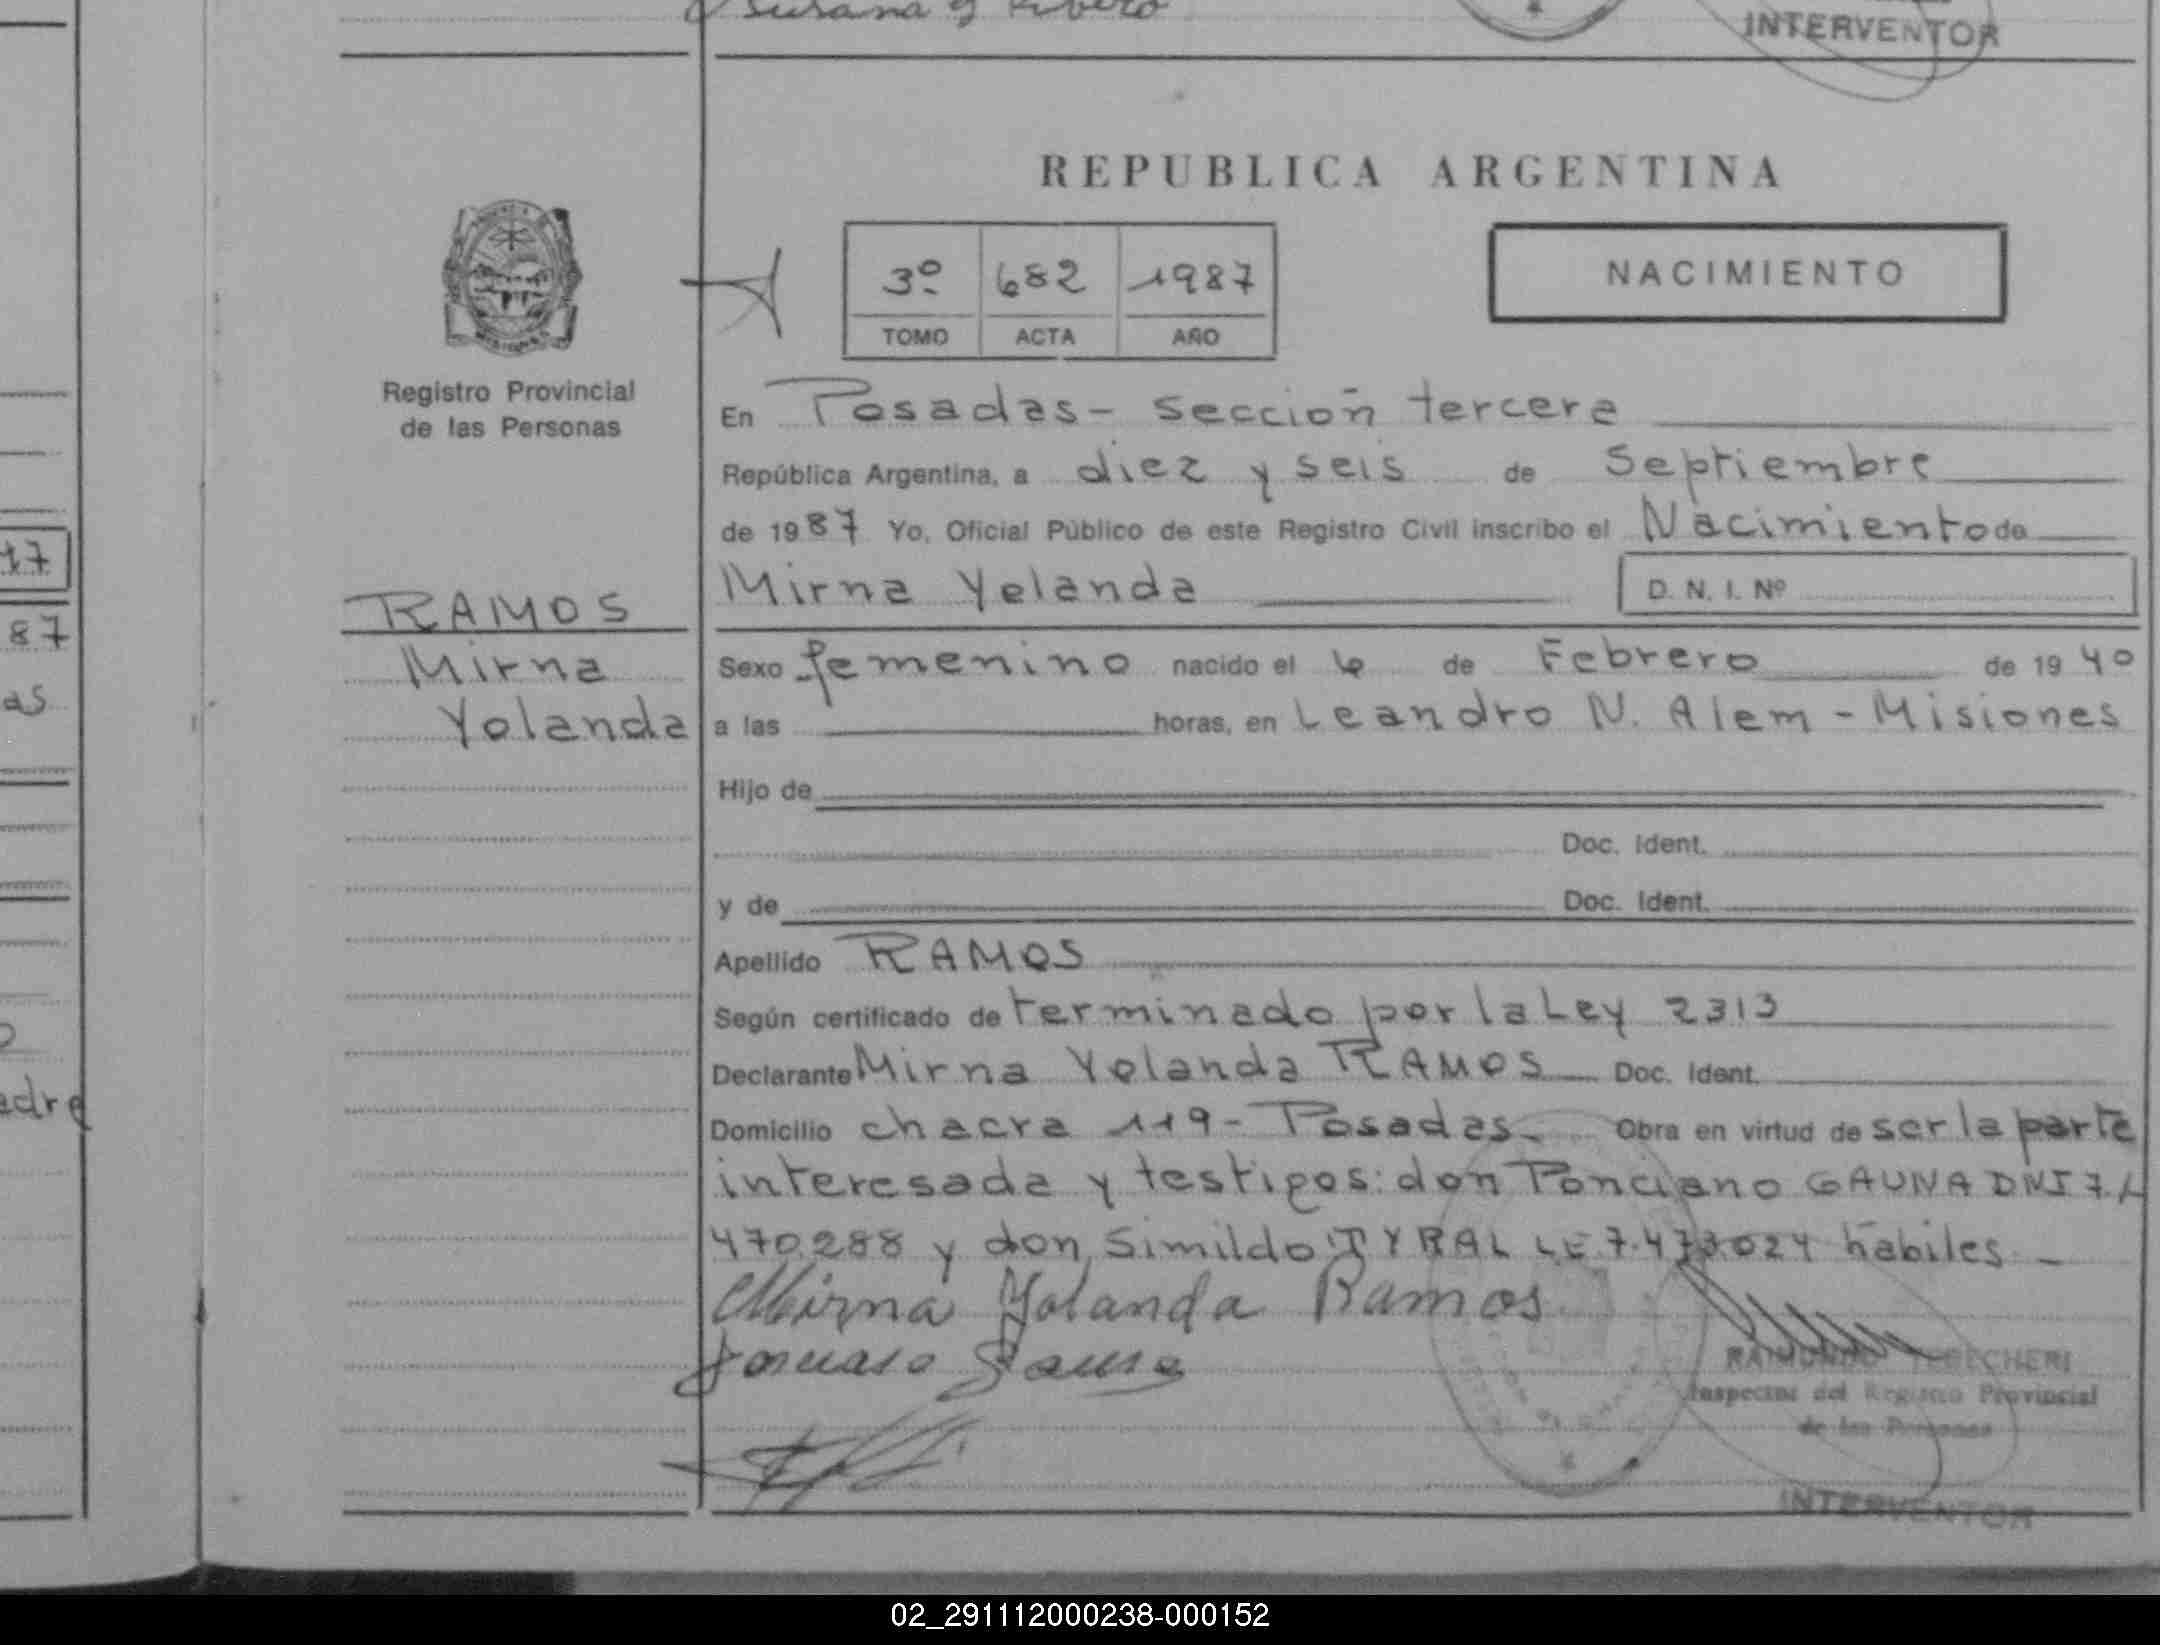 Susana
INTERVENTOR
REPUBLICA ARGENTINA
3º 682 1987
TOMO ACTA AÑO
NACIMIENTO
Registro Provincial
de las Personas
En Posadas - sección tercera
República Argentina, a diez y seis de Septiembre
de 1987 Yo, Oficial Público de este Registro Civil inscribo el Nacimiento de
Mirna Yolanda D. N. I. Nº
17
87
as
adre
RAMOS
Mirna
Yolanda
Sexo femenino nacido el 6 de Febrero de 1940
a las horas, en Leandro N. Alem - Misiones
Hijo de
Doc. Ident.
y de Doc. Ident.
Apellido RAMOS
Según certificado de terminado por la Ley 2313
Declarante Mirna Yolanda RAMOS Doc. Ident.
Domicilio chacra 119 - Posadas - Obra en virtud de ser la parte
interesada y testigos: don Ponciano GAUNA DNI 7.
470.288 y don Simildo TYRAL LE 7.473.024 hábiles -
Mirna Yolanda Ramos
Gauna
RAIMUNDO
Inspector del Registro Provincial
de las Personas
INTERVENTOR
02_291112000238-000152